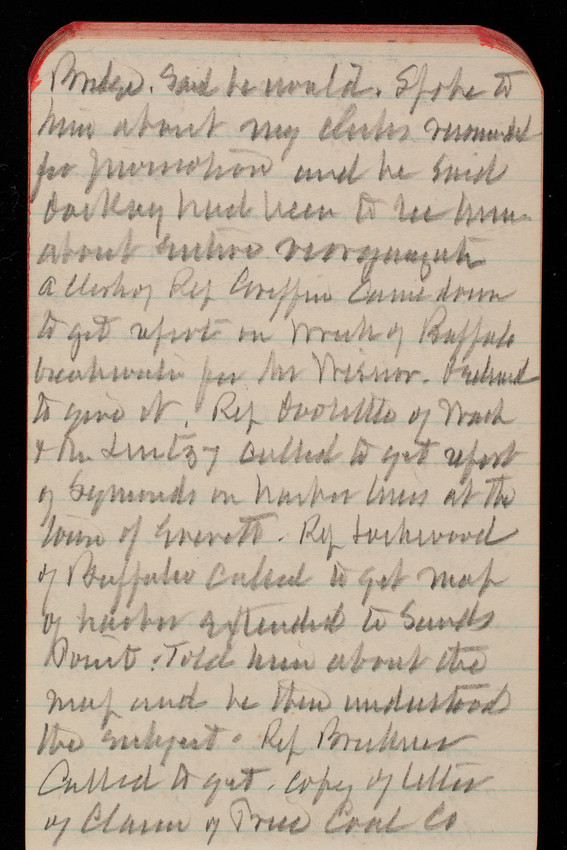 Bridge. Said he would. Spoke to
him about my clerks
for promotion and he said
had been to see him
about entire
A clerk of Rep Griffin came down
to get report on work of Buffalo
breakwater for Mr
to give it. Rep Doolittle of Wash
& Mr called to get report
of Symonds on harbor lines at the
town of Everett. Rep Lockwood
of Buffalo called to get map
of harbor extended to Sands
Point. Told him about the
map and he then understood
the subject. Rep
Called to get copy of letter
of Claim of Coal Co